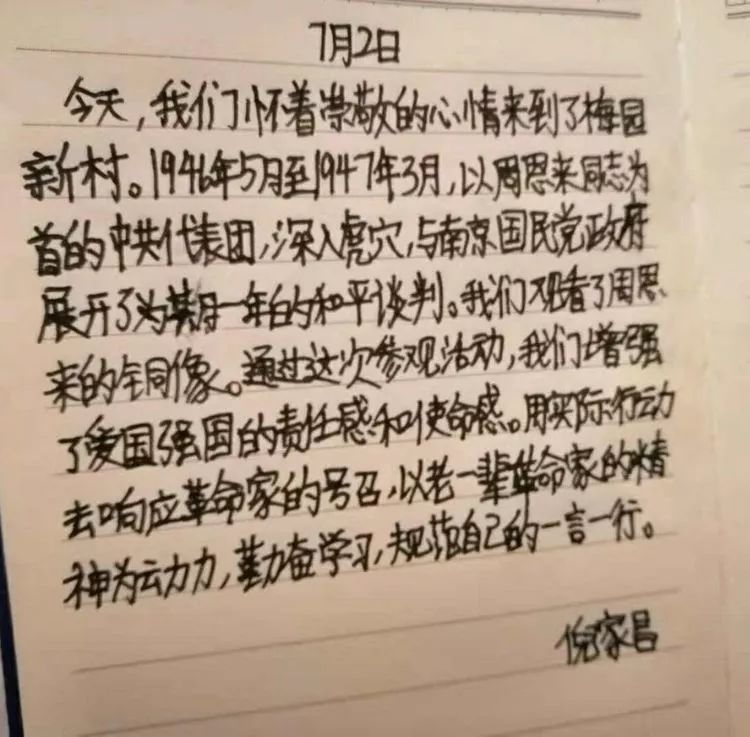 7月2日
今天,我们怀着崇敬的心情来到了梅园
新村。1946年5月至1947年3月,以周恩来同志为
首的中共代表团,深入虎穴,与南京国民党政府
展开了为期一年的和平谈判。我们观看了周恩
来的全铜像。通过这次参观活动,我们增强
了爱国强国的责任感和使命感。用实际行动
去响应革命家的号召,以老一辈革命家的精
神为动力,勤奋学习,规范自己的一言一行。
倪家昌